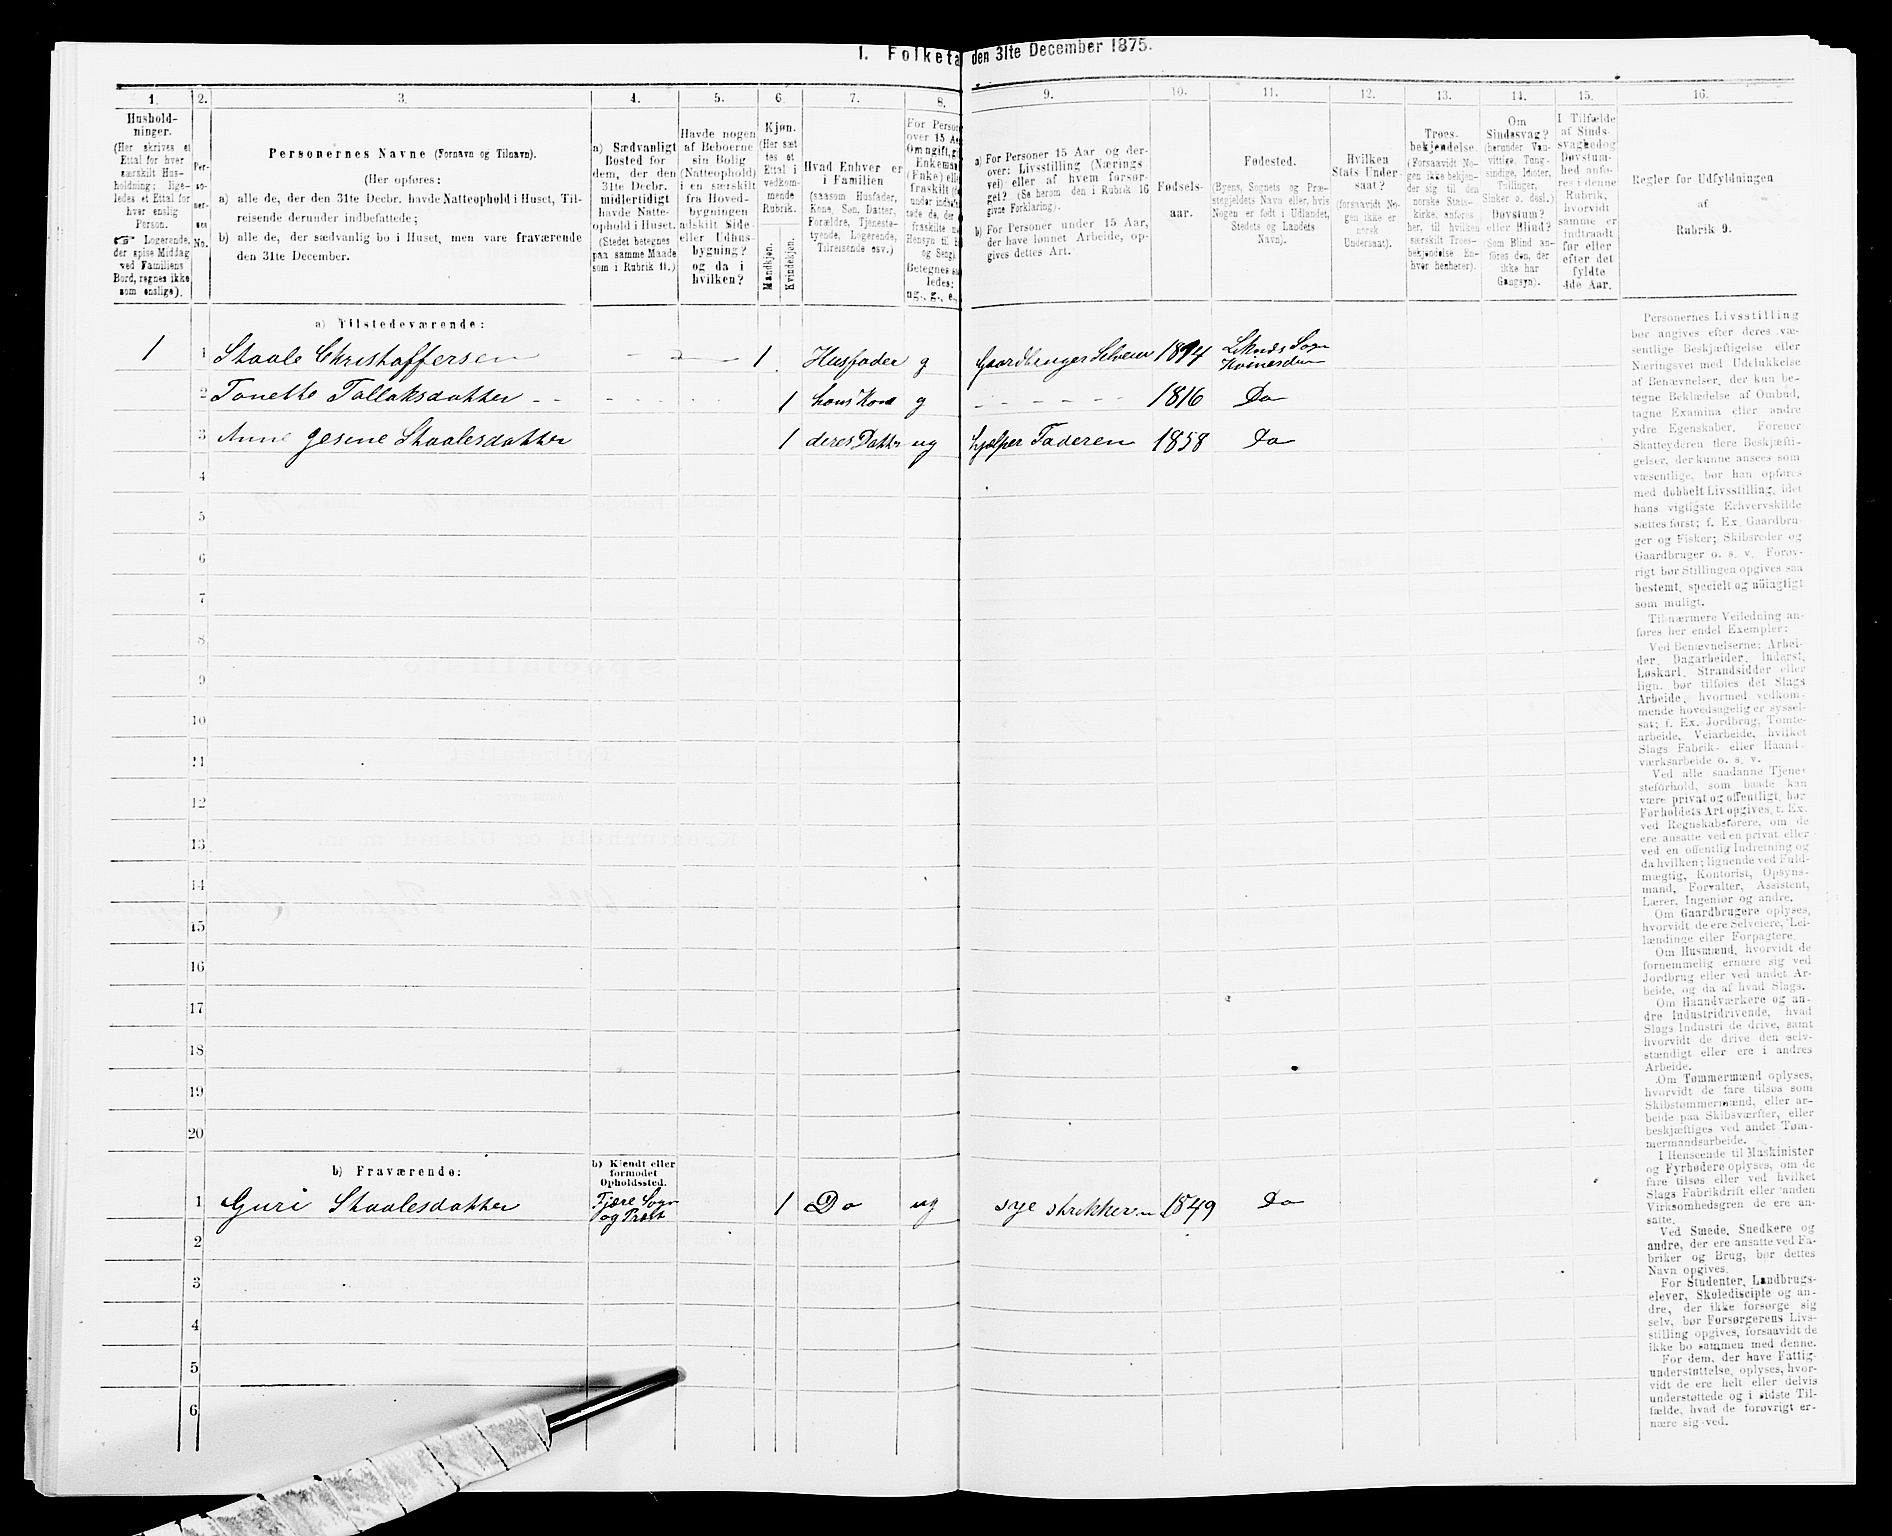 1. Folketa den 31te December 1875.
1. 2. 3. 4. 5. 6. 7. 8. 9. 10. 11. 12. 13. 14. 15. 16.
Hushold-
ninger.
(Her skrives et
Ettal for hver
særskilt Hus-
holdning; lige-
ledes et Ettal for
hver enslig
Person.
☞ Logerende,
der spise Middag
ved Familiens
Bord, regnes ikke
som enslige).
Per-
so-
ner-
nes
No.
Personernes Navne (Fornavn og Tilnavn).
(Her opføres:
a) alle de, der den 31te Decbr. havde Natteophold i Huset, Til-
reisende derunder indbefattede;
b) alle de, der sædvanlig bo i Huset, men vare fraværende
den 31te December.
a) Sædvanligt
Bosted for
dem, der den
31te Decbr.
midlertidigt
havde Natte-
ophold i Huset.
(Stedet betegnes
paa samme Maade
som i Rubrik 11.)
Havde nogen
af Beboerne
sin Bolig
(Natteophold)
i en særskilt
fra Hoved-
bygningen
adskilt Side-
eller Udhus-
bygning?
og da i
hvilken?
Kjøn.
(Her sæt
tes et
Ettal i
vedkom-
mende
Rubrik.
Mandkjøn.
Kvindekjøn.
Hvad Enhver er
i Familien
(saasom Husfader,
Kone, Søn, Datter,
Forældre, Tjeneste-
tyende, Logerende,
Tilreisende osv.)
For Person
over 15 Aa
Om ugift, gi
Enkeman
(Enke) elle
fraskilt (
under indb
tede de, der
fraskilte
Hensyn til B
og Seng).
Betegnes s
ledes:
ug., g., e.,
a) For Personer 15 Aar og der-
over: Livsstilling (Nærings
vei) eller af hvem forsør-
get? (Se herom den i Rubrik 16
givne Forklaring).
b) For Personer under 15 Aar,
der have lønnet Arbeide, op-
gives dettes Art.
Fødsels-
aar.
Fødested.
(Byens, Sognets og Præ-
stegjeldets Navn eller, hvis
Nogen er født i Udlandet,
Stedets og Landets
Navn).
Hvilken
Stats Under-
saat?
(forsaavidt No-
gen ikke er
norsk
Undersaat).
Troes-
bekjendelse.
(Forsaavidt No-
gen ikke bekjen-
der sig til den
norske Stats-
kirke, anføres
her, til hvilken
særskilt Troes-
bekjendelse En-
hver henhører).
Om
Sindssvag?
(herunder Van-
vittige, Tung-
sindige, Idioter,
Tullinger,
Sinker o. desl.)
Døvstum?
eller Blind?
(Som Blind an-
føres den, der
ikke har
Gangsyn).
I Tilfælde
af Sinds-
svaghed og
Døvstum-
hed anfø-
res i denne
Rubrik,
hvorvidt
samme er
indtraadt
før eller
efter det
fyldte
4de Aar.
Regler for Udfyldningen
af
Rubrik 9.
a) Tilstedeværende:
1 1 Staale Christoffersen 1 Husfader g Gaardbruger Selveier Sogn
2 Tonette Tallaksdatter 1 hans Kone g 1816 Do
3 Anne Gesine Staalesdatter 1 deres Datter ug hjælper Faderen 1858 Do
4
5
6
7
8
9
10
11
12
13
14
15
16
17
18
19
20
b) Fraværende:
b) Kjendt eller
formodet
Opholdssted.
1 Guri Staalesdatter Fjære Sogn
og Præst 1 Do ug sye 1849 Do
2
3
4
5
6
Personernes Livsstilling
bør angives efter deres væ-
sentlige Beskjæftigelse eller
Næringsvei med Udelukkelse
af Benævnelser, der kun be-
tegne Beklædelse af Ombud,
tagne Examina eller andre
ydre Egenskaber. Forener
Skatteyderen flere Beskjæfti-
gelser, der kunne ansees som
væsentlige, bør han opføres
med dobbelt Livsstilling, idet
hans vigtigste Erhvervskilde
sættes først; f. Ex. Gaardbru-
ger og Fisker; Skibsreder og
Gaardbruger o. s. v. Forøv-
rigt bør Stillingen opgives saa
bestemt, specielt og nöiagtigt
som muligt.
Til nærmere Veiledning an-
føres her endel Exempler:
Ved Benævnelserne: Arbei-
der, Dagarbeider, Inderst,
Løskarl, Strandsidder eller
lign. bør tilføies det Slags
Arbeide, hvormed vedkom-
mende hovedsagelig er syssel-
sat; f. Ex. Jordbrug, Tomte-
arbeide, Veiarbeide, hvilket
Slags Fabrik- eller Haand-
værksarbeide o. s. v.
Ved alle saadanne Tjene-
steforhold, som baade kan
være privat og offentligt, bør
Forholdets Art opgives, t. Ex.
ved Regnskabsførere, om de
ere ansatte ved en privat eller
ved en offentlig Indretning og
da hvilken; lignende ved Fuld-
mægtig, Kontorist, Opsyns-
mand, Forvalter, Assistent,
Lærer, Ingeniør og andre.
Om Gaardbrugere oplyses,
hvorvidt de ere Selveiere, Lei-
lændinge eller Forpagtere.
Om Husmænd, hvorvidt de
fornemmelig ernære sig ved
Jordbrug eller ved andet Ar-
beide, og da af hvad Slags.
Om Haandværkere og an-
dre Industridrivende, hvad
Slags Industri de drive, samt
hvorvidt de drive den selv-
stændigt eller ere i andres
Arbeide.
Om Tømmermænd oplyses,
hvorvidt de fare tilsøs som
Skibstømmermænd, eller ar-
beide paa Skibsværfter, eller
beskjæftiges ved andet Tøm-
mermandsarbeide.
I Henseende til Maskinister
og Fyrbødere oplyses, om de
fare tilsøs eller ved hvilket
Slags Fabrikdrift eller anden
Virksomhedsgren de ere an-
satte.
Ved Smede, Snedkere og
andre, der ere ansatte ved Fa-
briker og Brug, bør dettes
Navn opgives.
For Studenter, Landbrugs-
elever, Skoledisciple og an-
dre, der ikke forsørge sig
selv, bør Forsørgerens Livs-
stilling opgives, forsaavidt de
ikke bo sammen med denne.
For dem, der have Fattig-
understøttelse, oplyses, hvor-
vidt de ere helt eller delvis
understøttede og i sidste Til-
fælde, hvad de forøvrigt er-
nære sig ved.